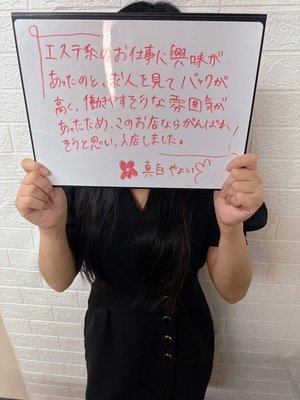 エステ系のお仕事に興味が
あったのと、求人を見てバックが
高く、働きやすそうな雰囲気が
あったため、このお店ならがんばれ
そうと思い、入店しました。
真白やよい